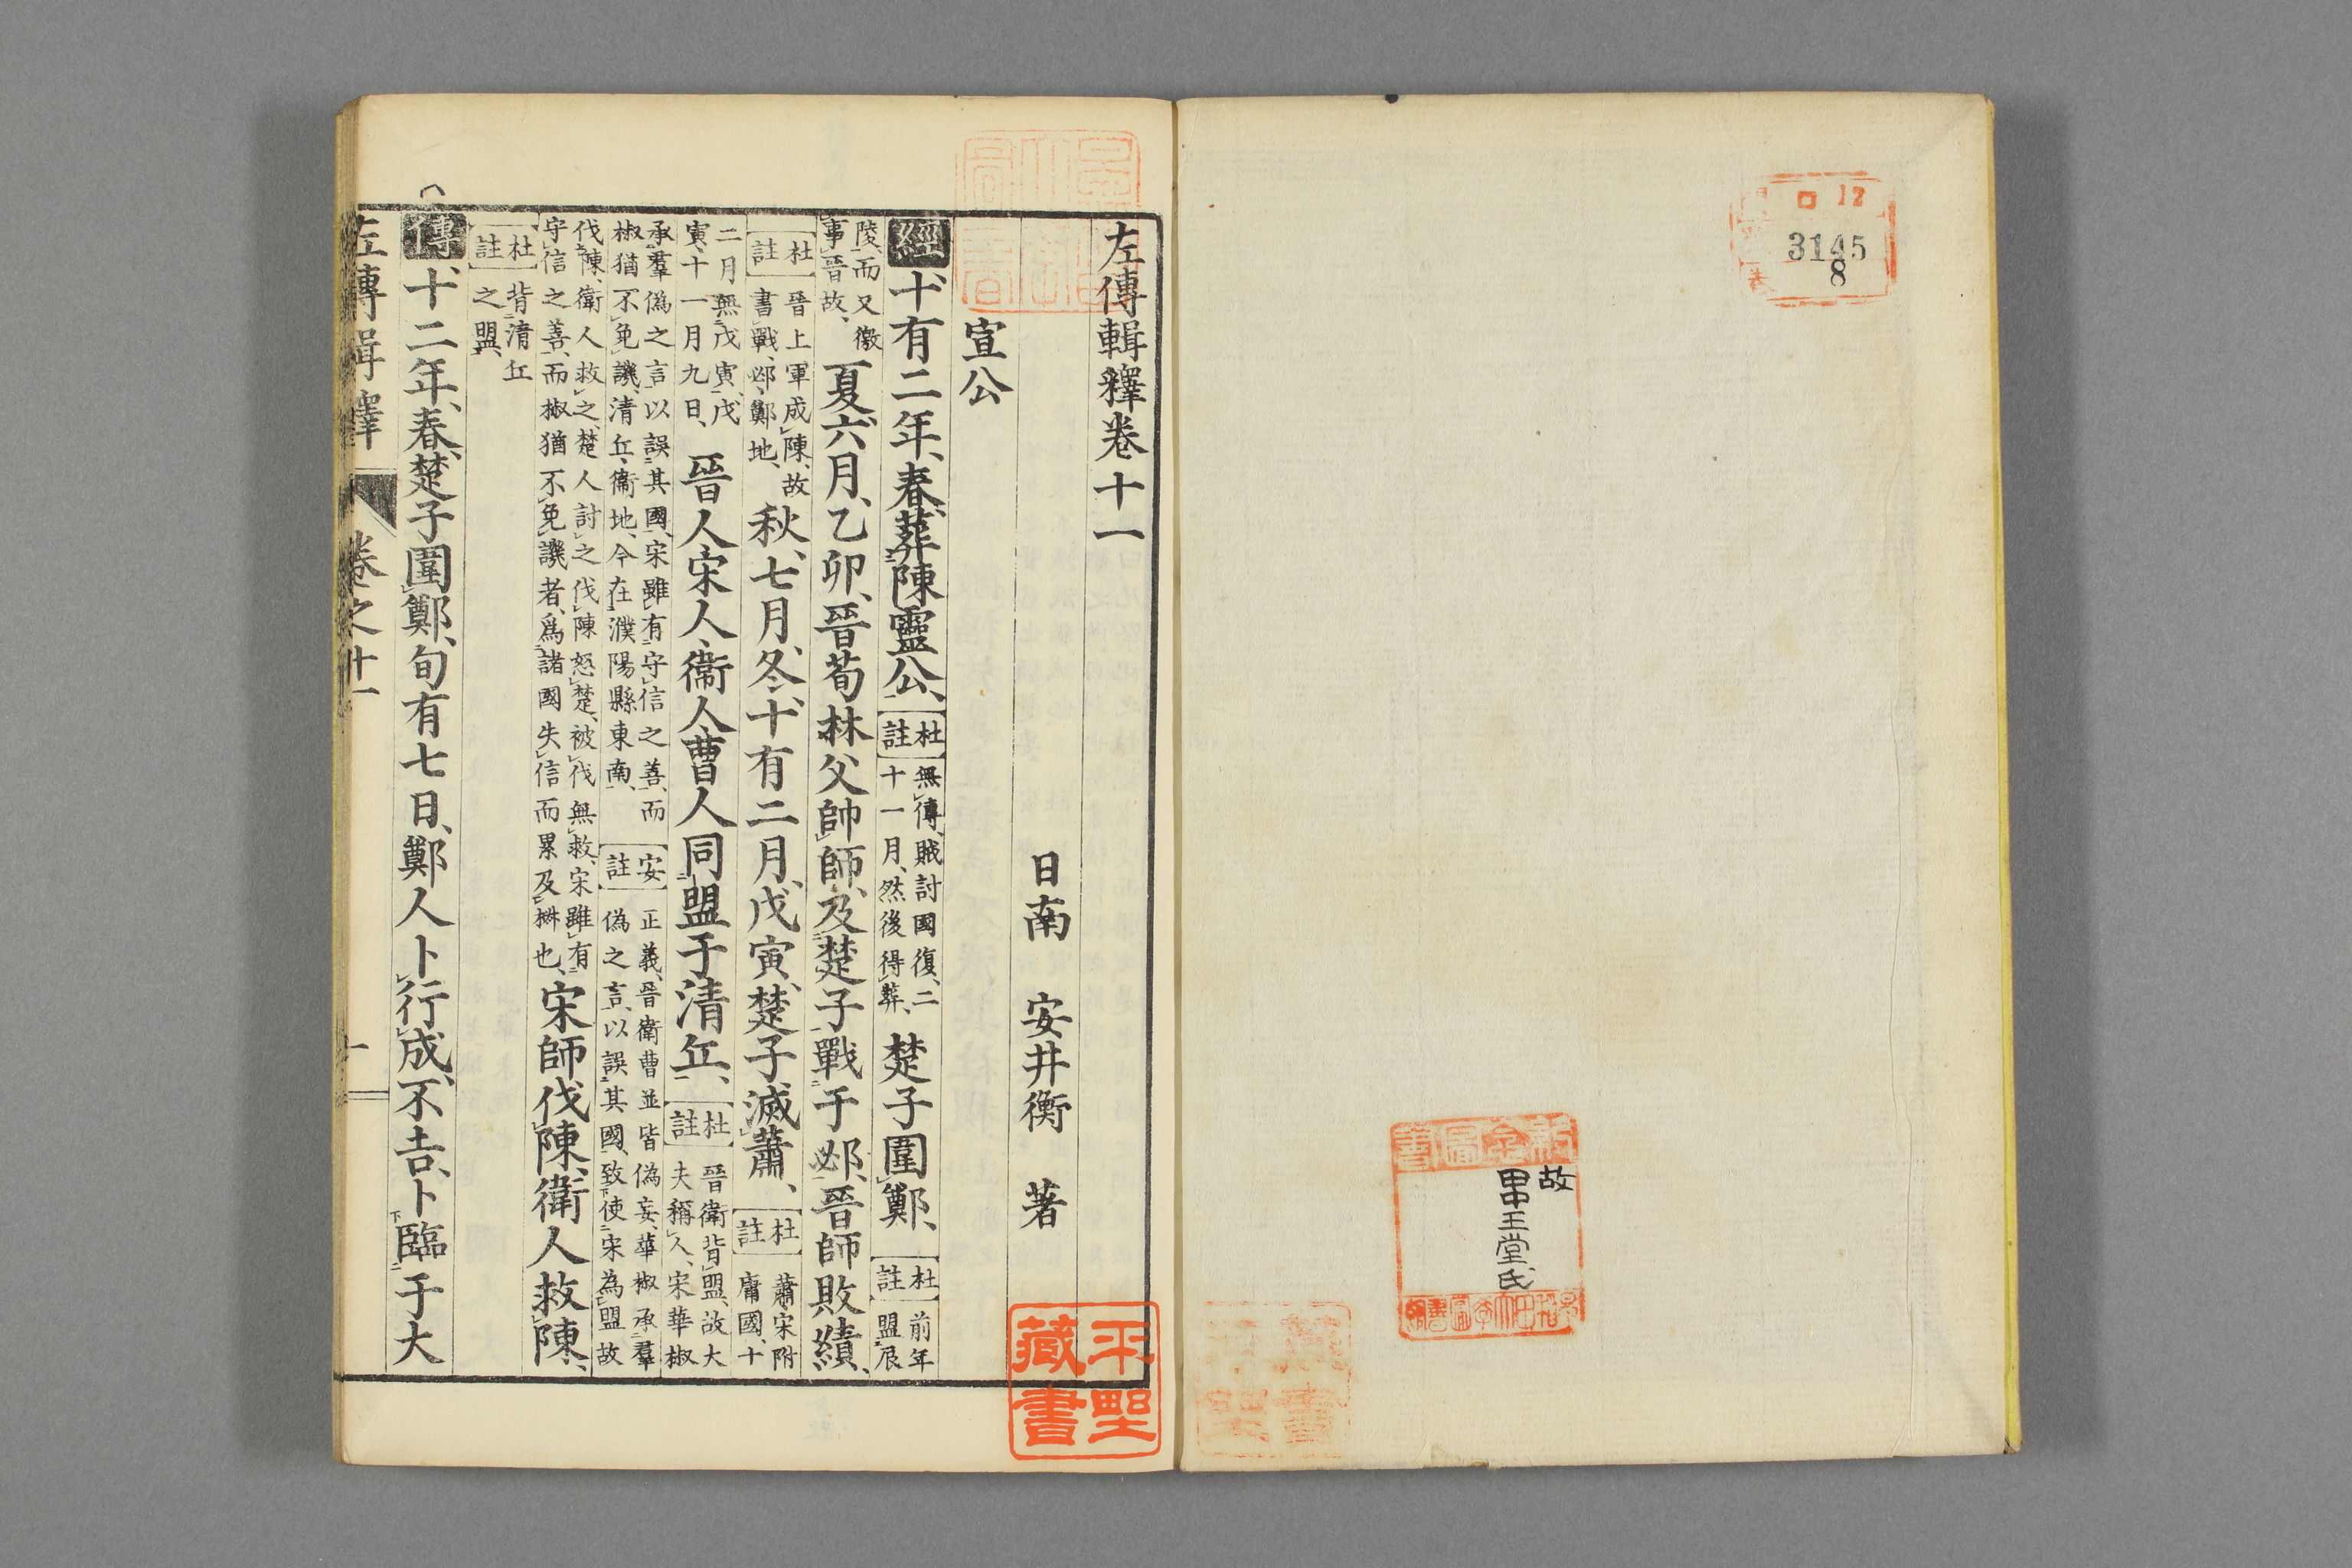 ロ 12
3145
8
故
王堂氏
左傳輯釋卷十一
日南 安井衡 著
宣公
經十有二年、春、葬陳靈公、杜註無傳、賊討國復、二十一月、然後得葬、楚子圍鄭、杜註前年盟辰
陵、而又徼事晉故、夏六月、乙卯、晉荀林父帥師、及楚子戰于邲、晉師敗績、
杜註晉上軍成陳、故書戰、邲、鄭地、秋、七月、冬、十有二月、戊寅、楚子滅蕭、杜註蕭、宋附庸國、十
二月無戊寅、戊寅、十一月九日、晉人宋人、衞人曹人同盟于清丘、杜註晉衛背盟、故大夫稱人、宋華椒
承羣僞之言以誤其國、宋雖有守信之善、而椒猶不免譏、清丘、衞地、今在濮陽縣東南、安註正義、晉衛曹並皆偽妄、華椒承羣偽之言、以誤其國、致使宋為盟故
伐陳、衛人救之、楚人討之伐陳怒楚、被伐無救、宋雖有守信之善、而椒猶不免譏者、爲諸國失信而累及椒也、宋師伐陳、衛人救陳、
杜註背清丘之盟、
傳十二年、春、楚子圍鄭、旬有七日、鄭人卜行成、不吉、卜臨于大
左傳輯釋 卷之十一 一
平野藏書